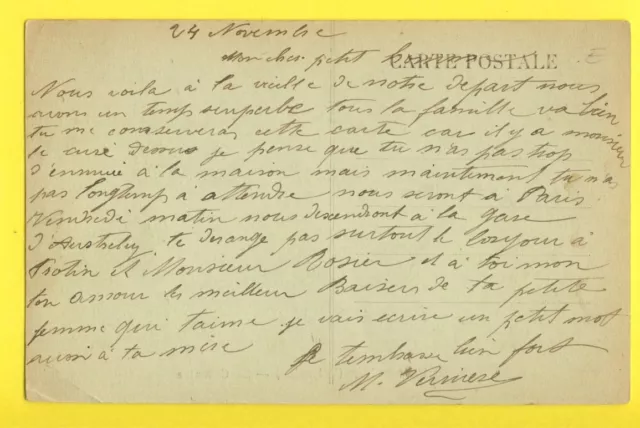 24 Novembre
CARTE POSTALE
Mon cher petit
Nous voila à la vieille de notre depart nous
avons un temp superbe tous la famille va bien
tu me conserveras cette carte car il y a monsieur
le curé Dessus je pense que tu n'as pas trop
d'ennuie à la maison mais maintement tu n'as
pas longtemp à attendre nous seront à Paris
Vendredi matin nous descendront à la gare
d' te derange pas surtout le bonjour à
et Monsieur Rosier et à toi mon
ton amour les meilleur Baisers de ta petite
femme qui t'aime je vais ecrire un petit mot
aussi à ta mère
Je t'embrasse bien fort
M.